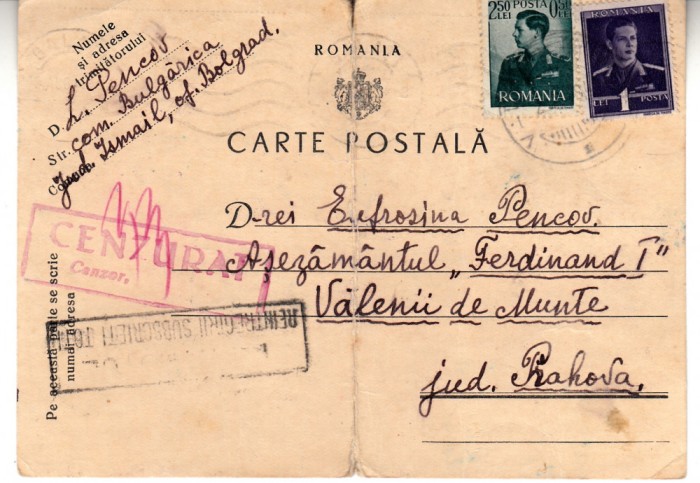 Numele
și adresa
trimițătorului
D. L. Pencov
Str. com. Bulgărica
jud. Ismail, of. Bolgrad.
ROMANIA
CARTE POSTALĂ
2,50 POSTA 0,50
LEI LEI
ROMANIA
ROMANIA
LEI 1 POSTA
D-rei Eufrosina Pencov.
Așezământul „Ferdinand I”
Vălenii de Munte
jud. Prahova.
CENZURAT
Cenzor,
REINTREGIRII SUBSCRIEȚI TOȚI
Pe această parte se scrie
numai adresa